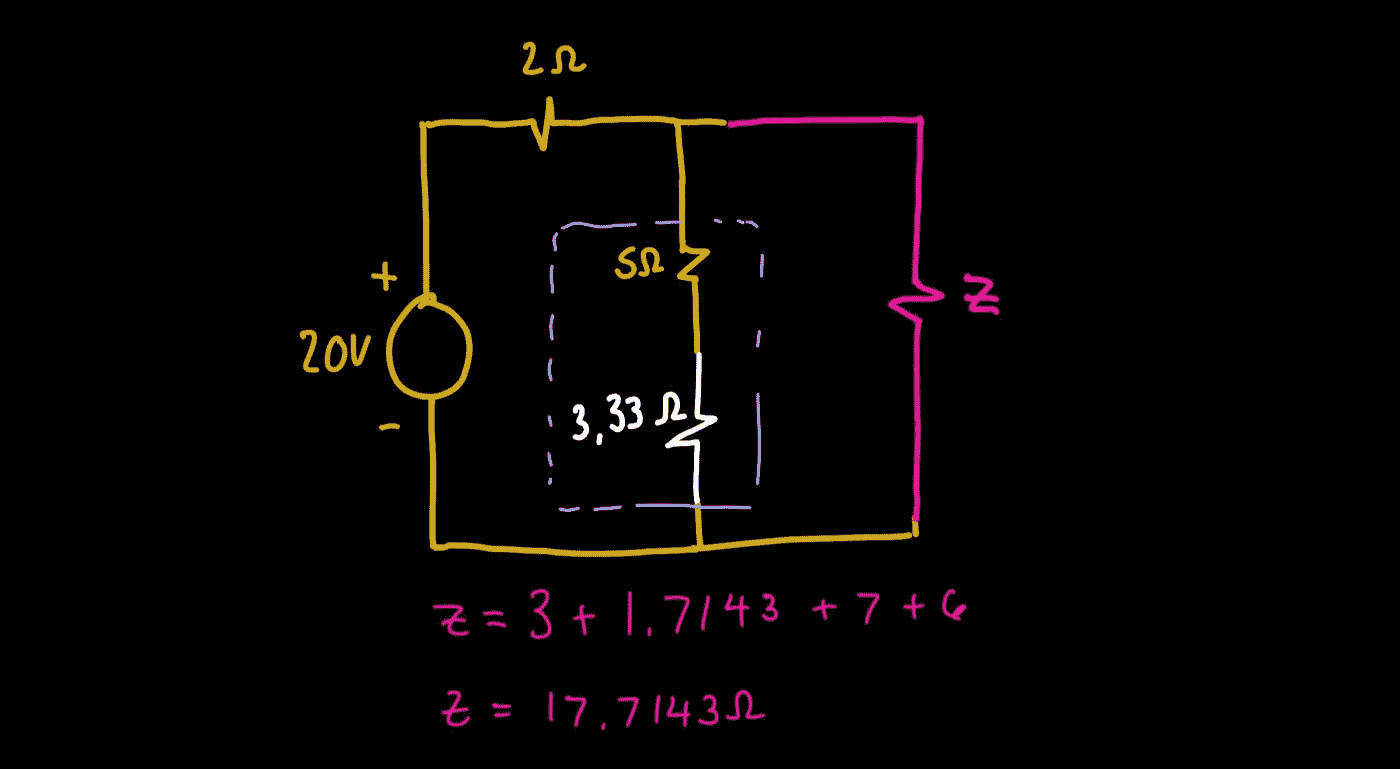 2Ω
+
5Ω
Z
20V
3,33Ω
-
Z = 3 + 1.7143 + 7 + 6
Z = 17.7143Ω